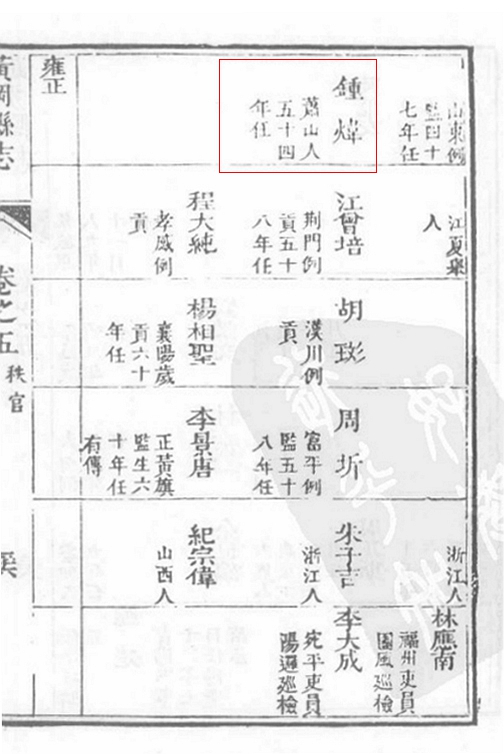 山東例
監四十
七年任
鍾煒
蕭山人
五十四
年任
雍正
江夏舉
人
江曾培
荆門例
貢五十
八年任
程大純
孝感例
貢
胡
漢川例
貢
楊相聖
襄陽歲
貢六十
年任
周圻
富平例
監五十
八年任
李景唐
正黃旗
監生六
十年任
有傳
浙江人
朱子
浙江人
紀宗偉
山西人
林應
福州吏員
團風巡檢
李大成
宛平吏員
陽邏巡檢
黃岡縣志
卷之五
秩官